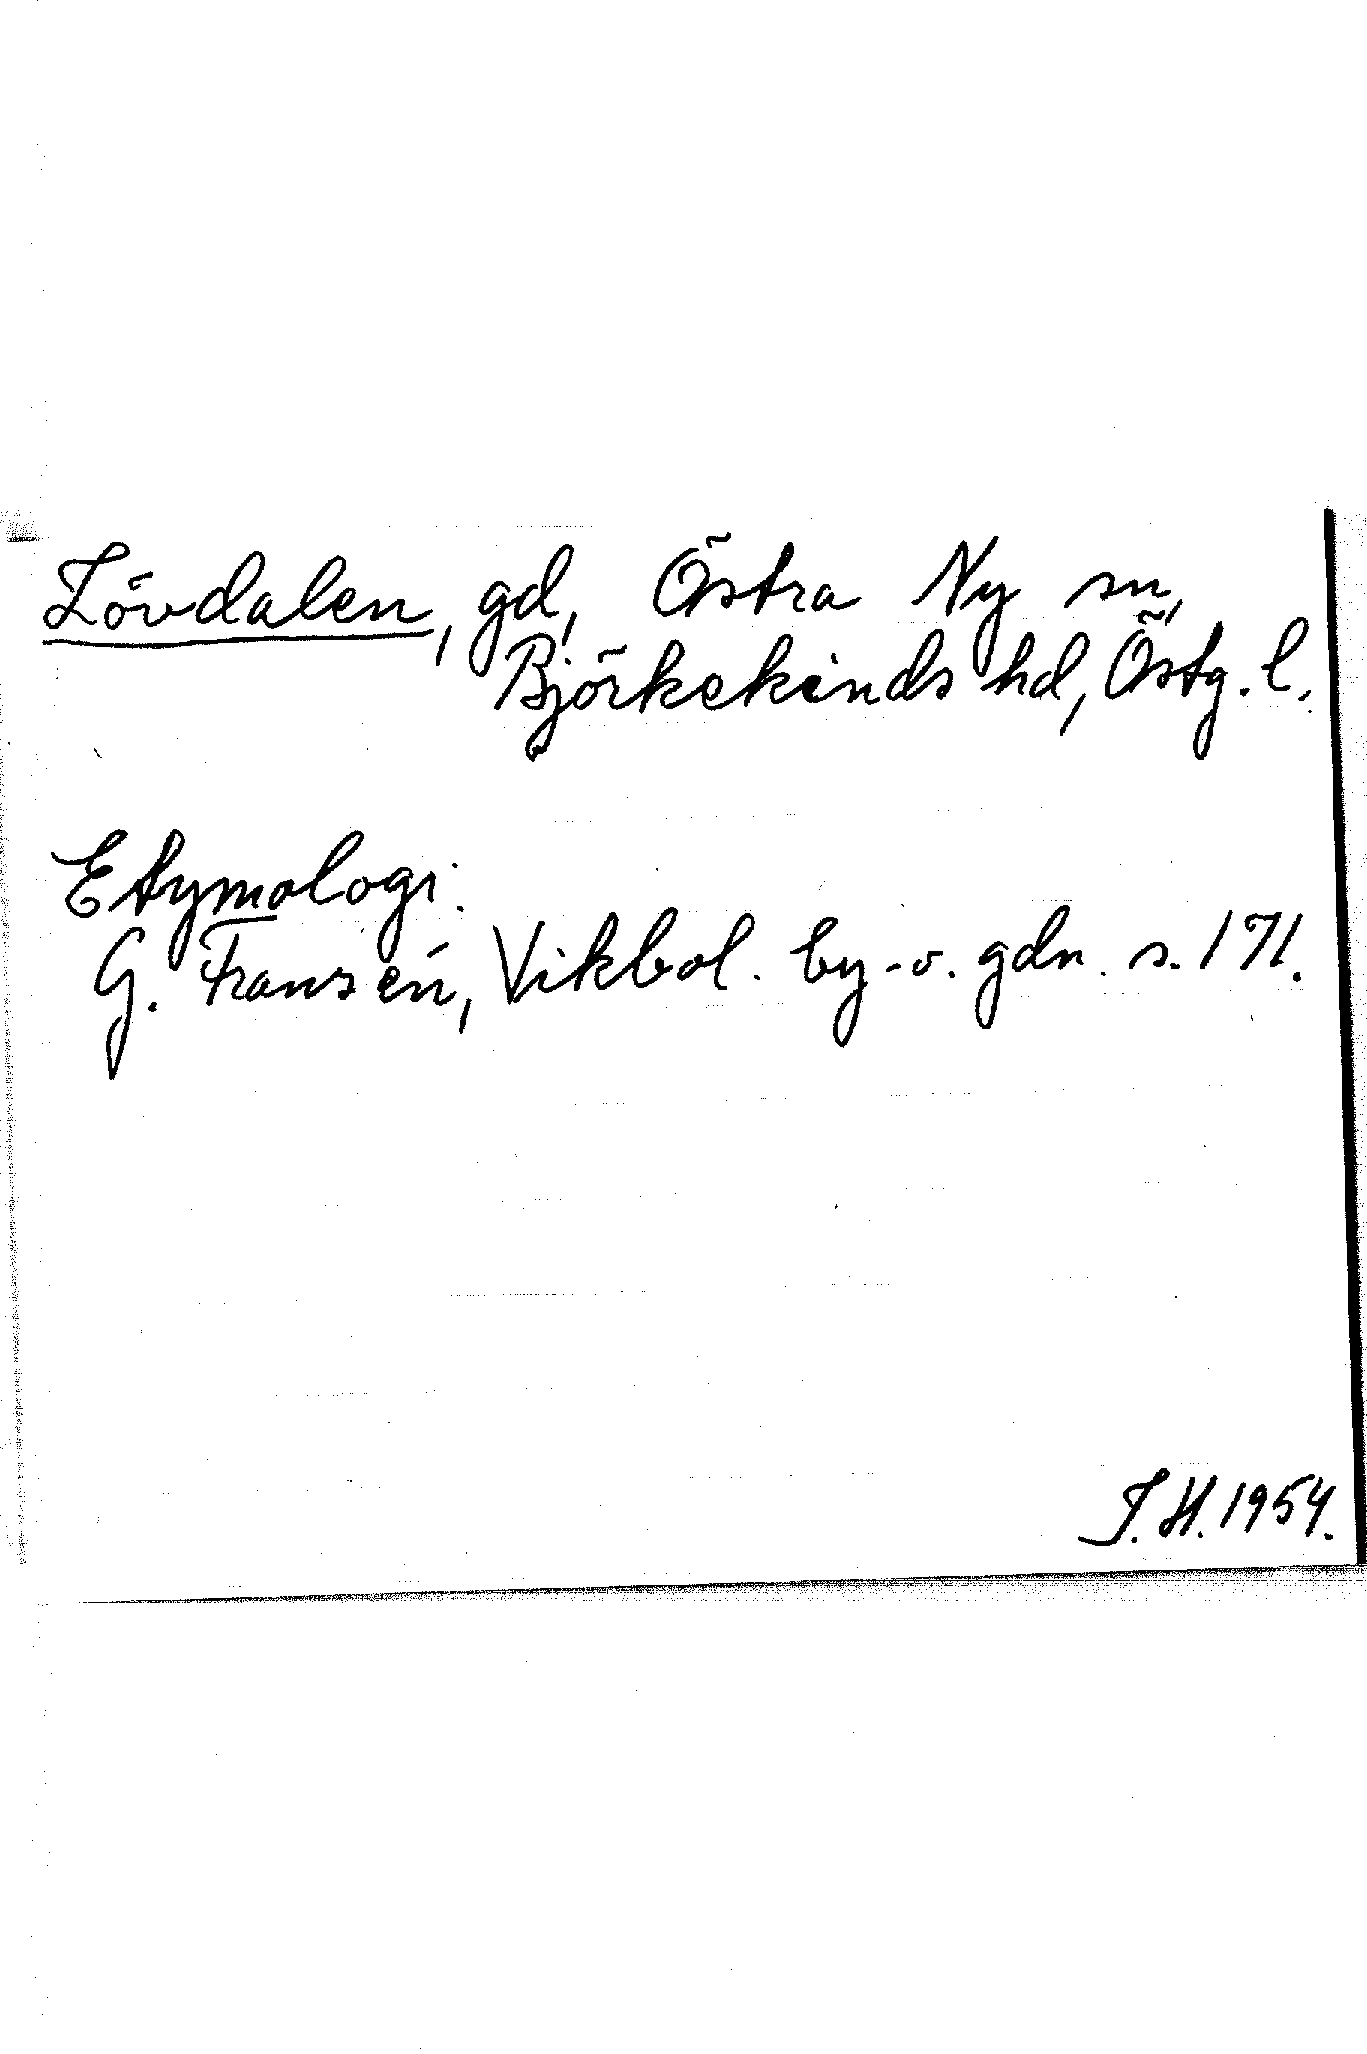 Lövdalen, gd, Östra Ny sn,
Björkekinds hd, Östg. l.
Etymologi.
G. Franzén, Vikbol. by- o. gdn. s. 171.
J. H. 1954.